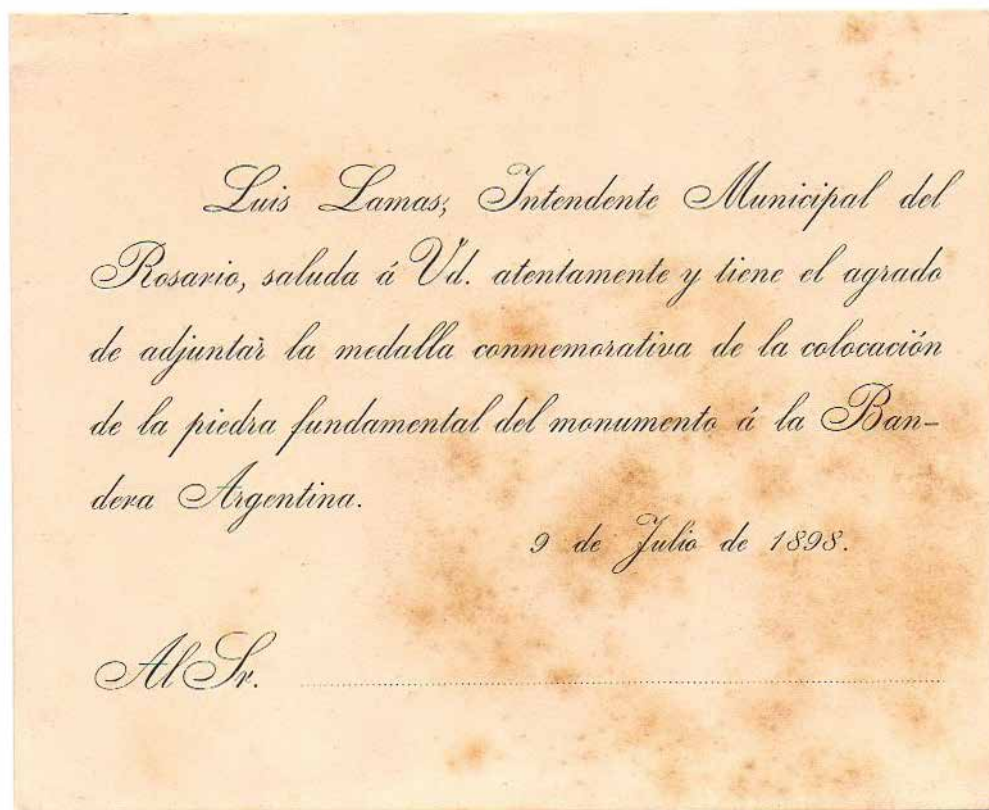 Luis Lamas, Intendente Municipal del
Rosario, saluda á Vd. atentamente y tiene el agrado
de adjuntar la medalla conmemorativa de la colocación
de la piedra fundamental del monumento á la Ban-
dera Argentina.
9 de Julio de 1898.
Al Sr.